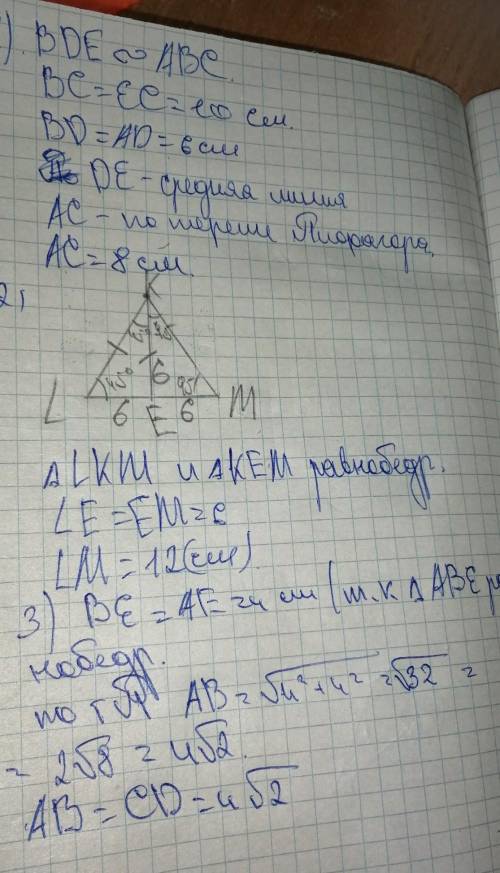 ) BDE ∾ ABC.
BC = EC = 10 см.
BD = AD = 6 см
DE - средняя линия
AC - по теореме Пифагора.
AC = 8 см.
2)
K
45° 45
45° 6 45
L 6 E 6 M
△LKM и △KEM равнобедр.
LE = EM = 6
LM = 12 (см)
3) BE = AE = 4 см (т.к △ABE ра
нобедр.
по т AB = √4²+4² = √32 =
= 2√8 = 4√2.
AB = CD = 4√2